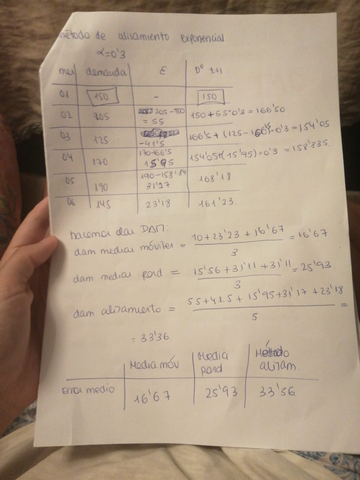 método de alisamiento exponencial
α=0'3
mes demanda E Dº t+1
01 150 - 150
02 205 205-150 = 55 150+55·0'3=166'50
03 125 -41'5 166'5+(125-166'5)·0'3=154'05
04 170 15'95 154'05+(15'95)·0'3=158'835
05 190 190-158'84 31'17 168'18
06 145 23'18 161'23
hacemos el DAM:
dam medias móviles = 10+23'23+16'67 / 3 = 16'67
dam media pond = 15'56+31'11+31'11 / 3 = 25'93
dam alisamiento = 55+41.5+15'95+31'17+23'18 / 5 =
= 33'36
Media móv Media pond Método alisam
Error medio 16'67 25'93 33'36